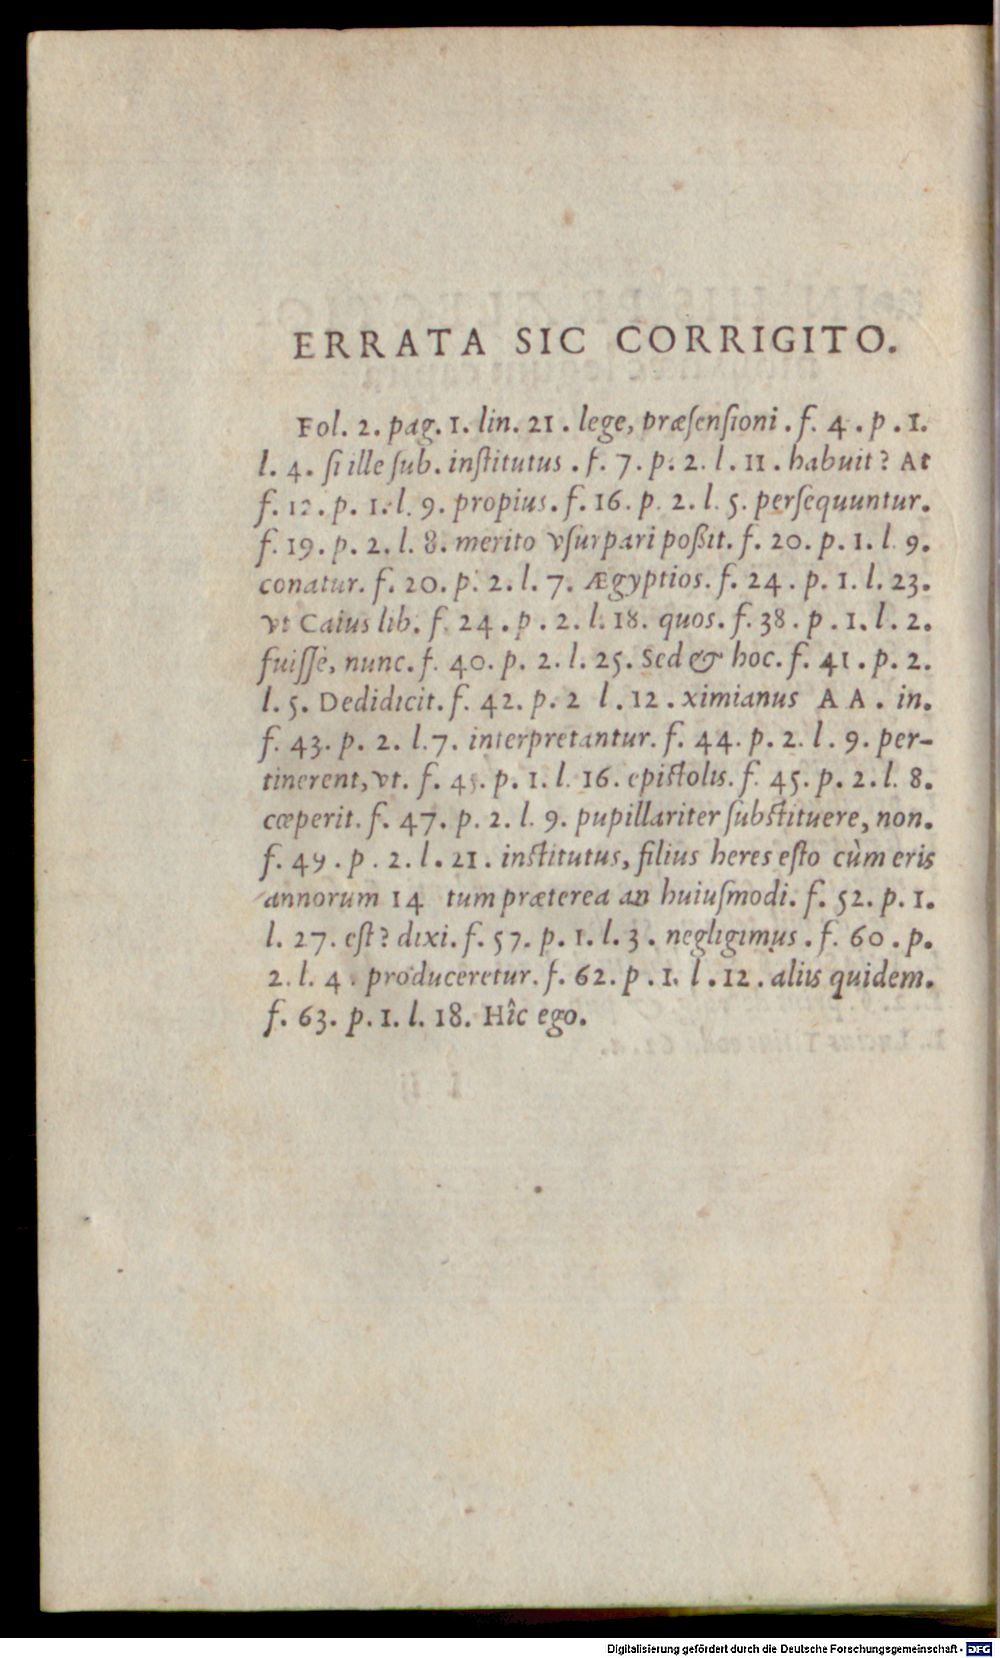 ERRATA SIC CORRIGITO.
Fol. 2. pag. 1. lin. 21. lege, præſenſioni. f. 4. p. 1.
l. 4. ſi ille ſub. inſtitutus. f. 7. p. 2. l. 11. habuit? At
f. 12. p. 1. l. 9. propius. f. 16. p. 2. l. 5. perſequuntur.
f. 19. p. 2. l. 8. merito vſurpari poßit. f. 20. p. 1. l. 9.
conatur. f. 20. p. 2. l. 7. Ægyptios. f. 24. p. 1. l. 23.
vt Caius lib. f. 24. p. 2. l. 18. quos. f. 38. p. 1. l. 2.
fuiſſe, nunc. f. 40. p. 2. l. 25. Sed & hoc. f. 41. p. 2.
l. 5. Dedidicit. f. 42. p. 2 l. 12. ximianus A A. in.
f. 43. p. 2. l. 7. interpretantur. f. 44. p. 2. l. 9. per-
tinerent, vt. f. 45. p. 1. l. 16. epiſtolis. f. 45. p. 2. l. 8.
cœperit. f. 47. p. 2. l. 9. pupillariter ſubſtituere, non.
f. 49. p. 2. l. 21. inſtitutus, filius heres eſto cùm eris
annorum 14 tum præterea an huiuſmodi. f. 52. p. 1.
l. 27. eſt? dixi. f. 57. p. 1. l. 3. negligimus. f. 60. p.
2. l. 4. produceretur. f. 62. p. 1. l. 12. aliis quidem.
f. 63. p. 1. l. 18. Hîc ego.
Digitalisierung gefördert durch die Deutsche Forschungsgemeinschaft - DFG